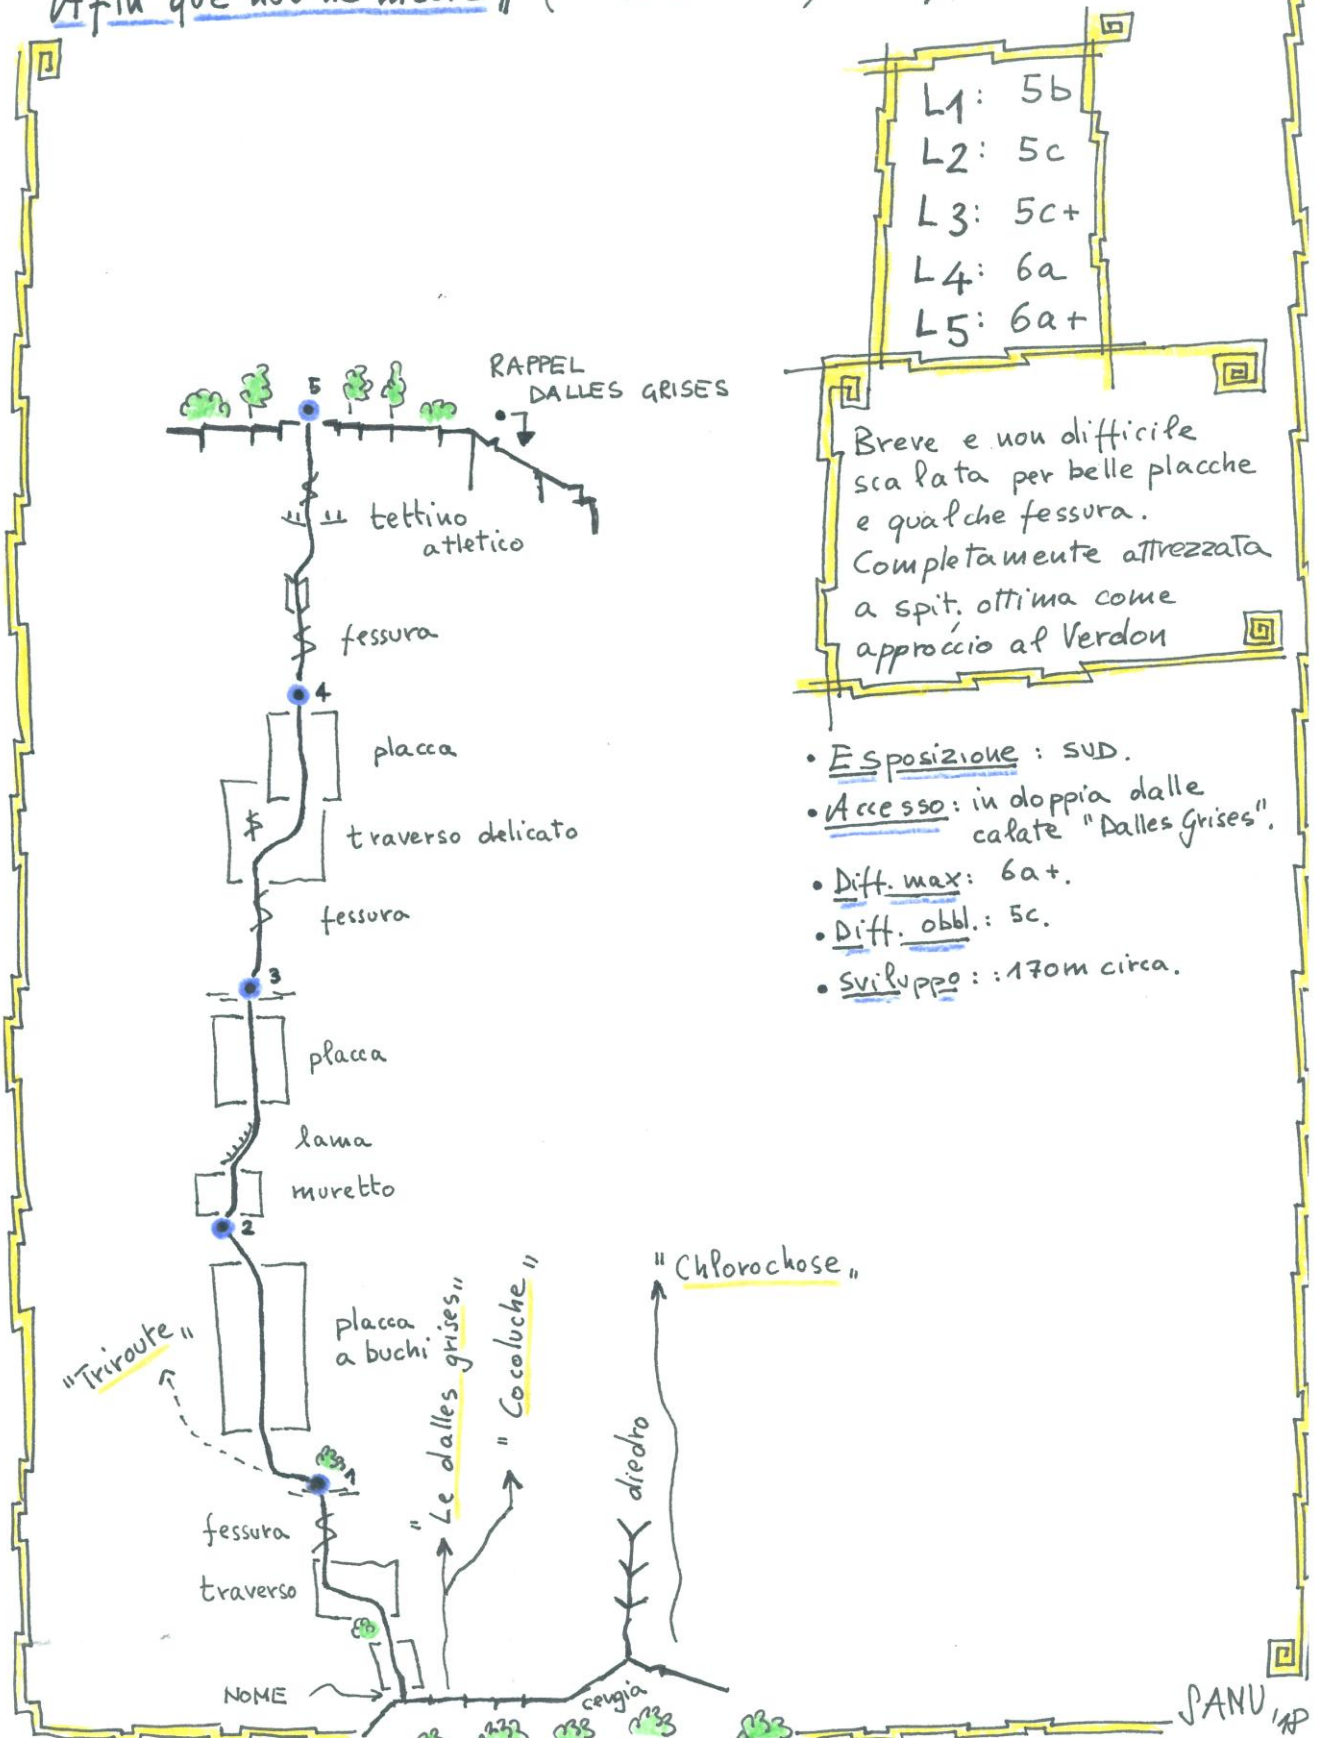 L1: 5b
L2: 5c
L3: 5c+
L4: 6a
L5: 6a+
Breve e non difficile
scalata per belle placche
e qualche fessura.
Completamente attrezzata
a spit, ottima come
approccio al Verdon
• Esposizione: SUD.
• Accesso: in doppia dalle
calate "Dalles Grises".
• Diff. max: 6a+.
• Diff. obbl.: 5c.
• Sviluppo: :170m circa.
RAPPEL
DALLES GRISES
5
tettino
atletico
fessura
4
placca
traverso delicato
fessura
3
placca
lama
muretto
2
placca
a buchi
"Triroute"
1
fessura
traverso
NOME
"Le dalles grises"
"Cocoluche"
diedro
"Chlorochose"
cengia
SANU '18